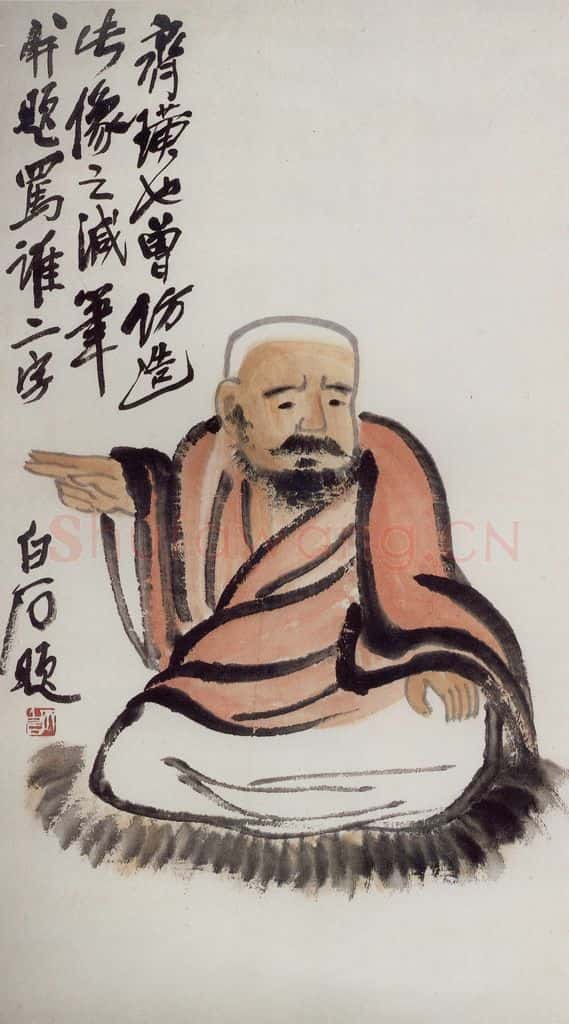 齊璜也曾仿造
此像之減筆
并題罵誰二字
白石題
Shuhuawang.CN